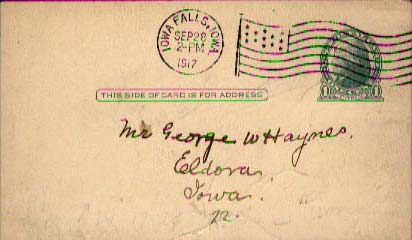 IOWA FALLS, IOWA
SEP 28
2-PM
1917
THIS SIDE OF CARD IS FOR ADDRESS
Mr George W Haynes,
Eldora,
Iowa.
22.